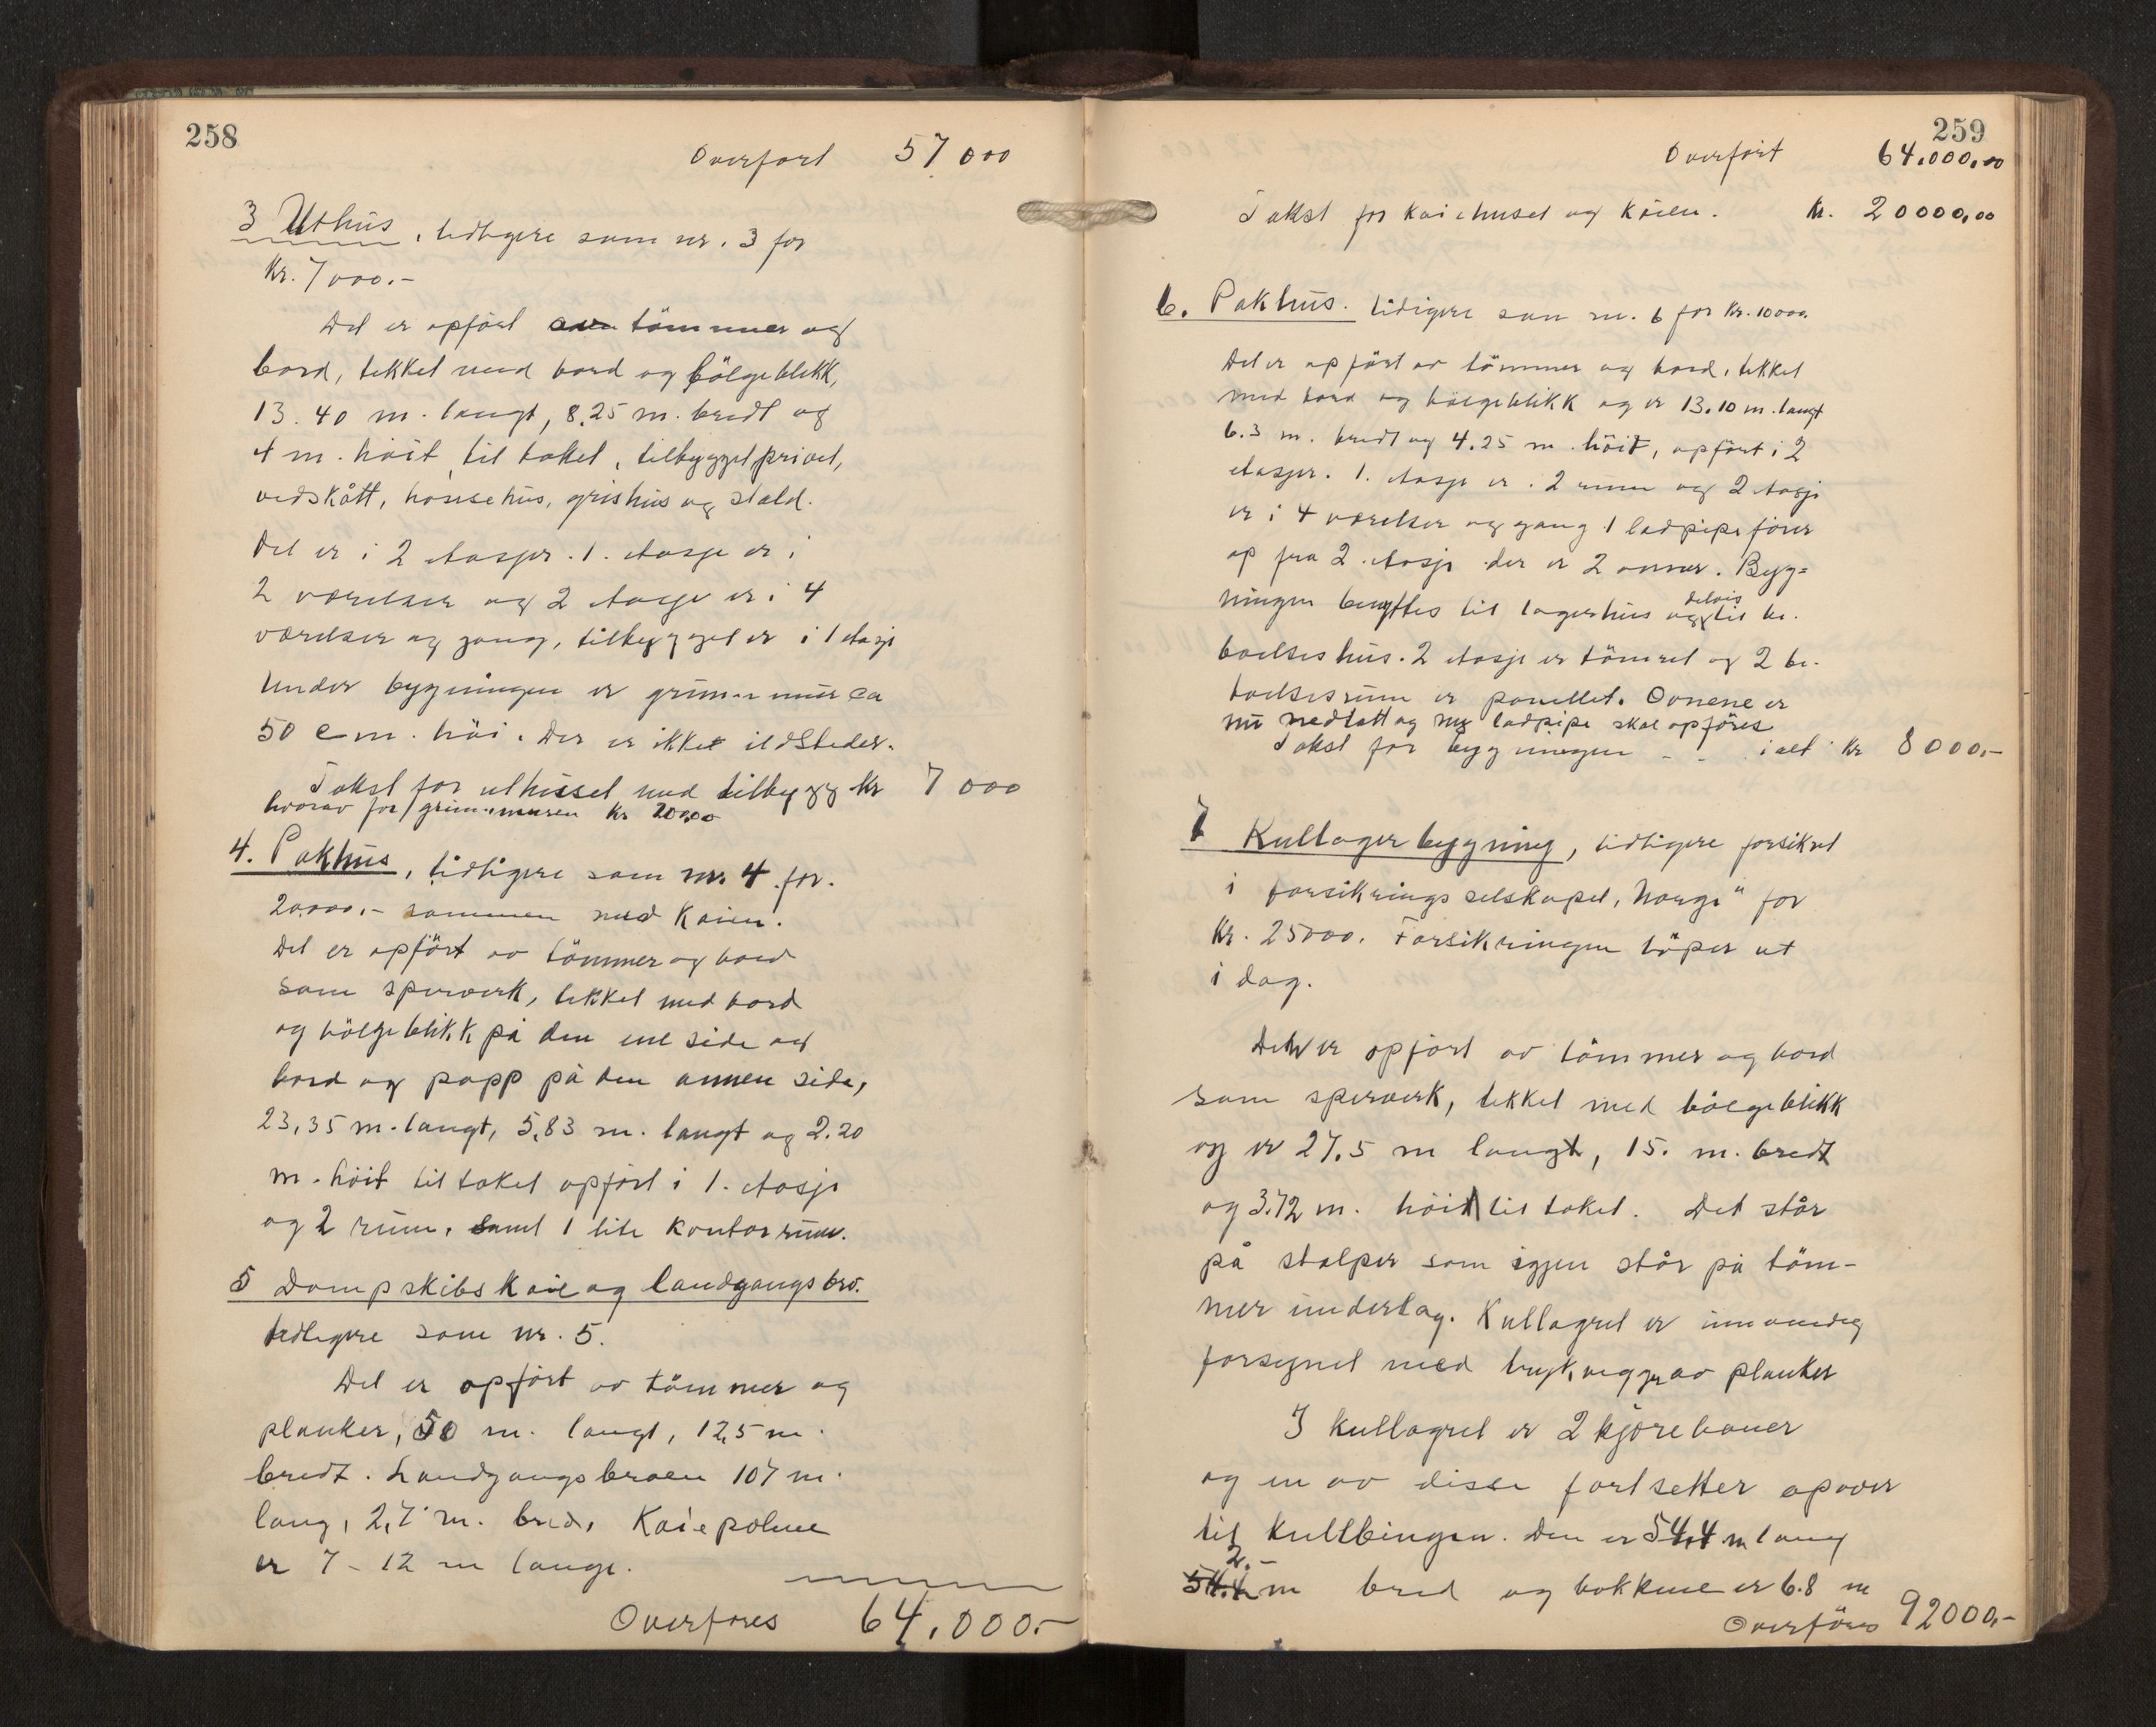 258
Overført 57.000
3 Uthus, tidligere som nr. 3 for
Kr. 7000.-
Det er opført av tömmer og
bord, tekket med bord og bölgeblikk,
13.40 m. langt, 8.25 m. bredt og
4 m. höit til taket, tilbygget privet,
vedskått, hönsehus, grishus og stald.
Det er i 2 etasjer. 1. etasje er i
2 værelser og 2 etasje er i 4
værelser og gang, tilbygget er i 1 etasje
Under bygningen er grunnmur ca
50 cm. höi. Der er ikke ildsteder.
Takst for uthuset med tilbygg kr 7 000
hvorav for grunnmuren kr
4. Pakhus, tidligere som nr. 4 for
20.000.- sammen med Kaien.
Det er opfört av tömmer og bord
som sperverk, tekket med bord
og bölgeblikk på den ene side og
bord og papp på den annen side,
23,35 m. langt, 5,83 m. langt og 2.20
m. höit til taket opført i 1. etasje
og 2 rum, samt 1 lite kontorrum.
5 Dampskibskaie og landgangsbro.
tidligere som nr. 5.
Det er opfört av tömmer og
planker, 50 m. langt, 12,5 m.
bredt. Landgangsbroen 107 m.
lang, 2,7 m. bred, Kaiepælene
er 7 - 12 m lange.
Overføres 64.000.-
259
Overfört 64.000,00
Takst for kaiehuset og kaien. kr. 20000,00
6. Pakhus. tidligere som nr. 6 for kr. 10000.
Det er opfört av tömmer og bord, tekket
med bord og bölgeblikk og er 13.10 m. langt
6.3 m. bredt og 4.25 m. höit, opfört i 2
etasjer. 1. etasje er i 2 rum og 2 etasje
er i 4 værelser og gang. 1 ladpipe förer
op fra 2. etasje der er 2 ovner. Byg=
ningen benyttes til lagerhus og delvis til be-
boelseshus. 2 etasje er tömret og 2 be-
boelsesrum er panellet. Ovnene er
nu nedtatt og ny ladpipe skal opföres
Takst for bygningen - - ialt kr 8000,-
7 Kullagerbygning, tidligere forsikret
i forsikringsselskapet „Norge" for
Kr. 25000. Forsikringen löper ut
i dag.
Det er opfört av tömmer og bord
som sperverk, tekket med bölgeblikk
og er 27.5 m langt, 15. m. bredt
og 3.72 m. höit til taket. Det står
på stolper som igjen står på töm-
mer underlag. Kullagret er innvendig
forsynet med trykvegger av planker
I kullagret er 2 kjørebaner
og en av disse fortsetter opover
til kullbingen. Den er 54,4 m lang
2.-
54.4 m bred og bokkene er 6.8 m
Overföres 92000.-